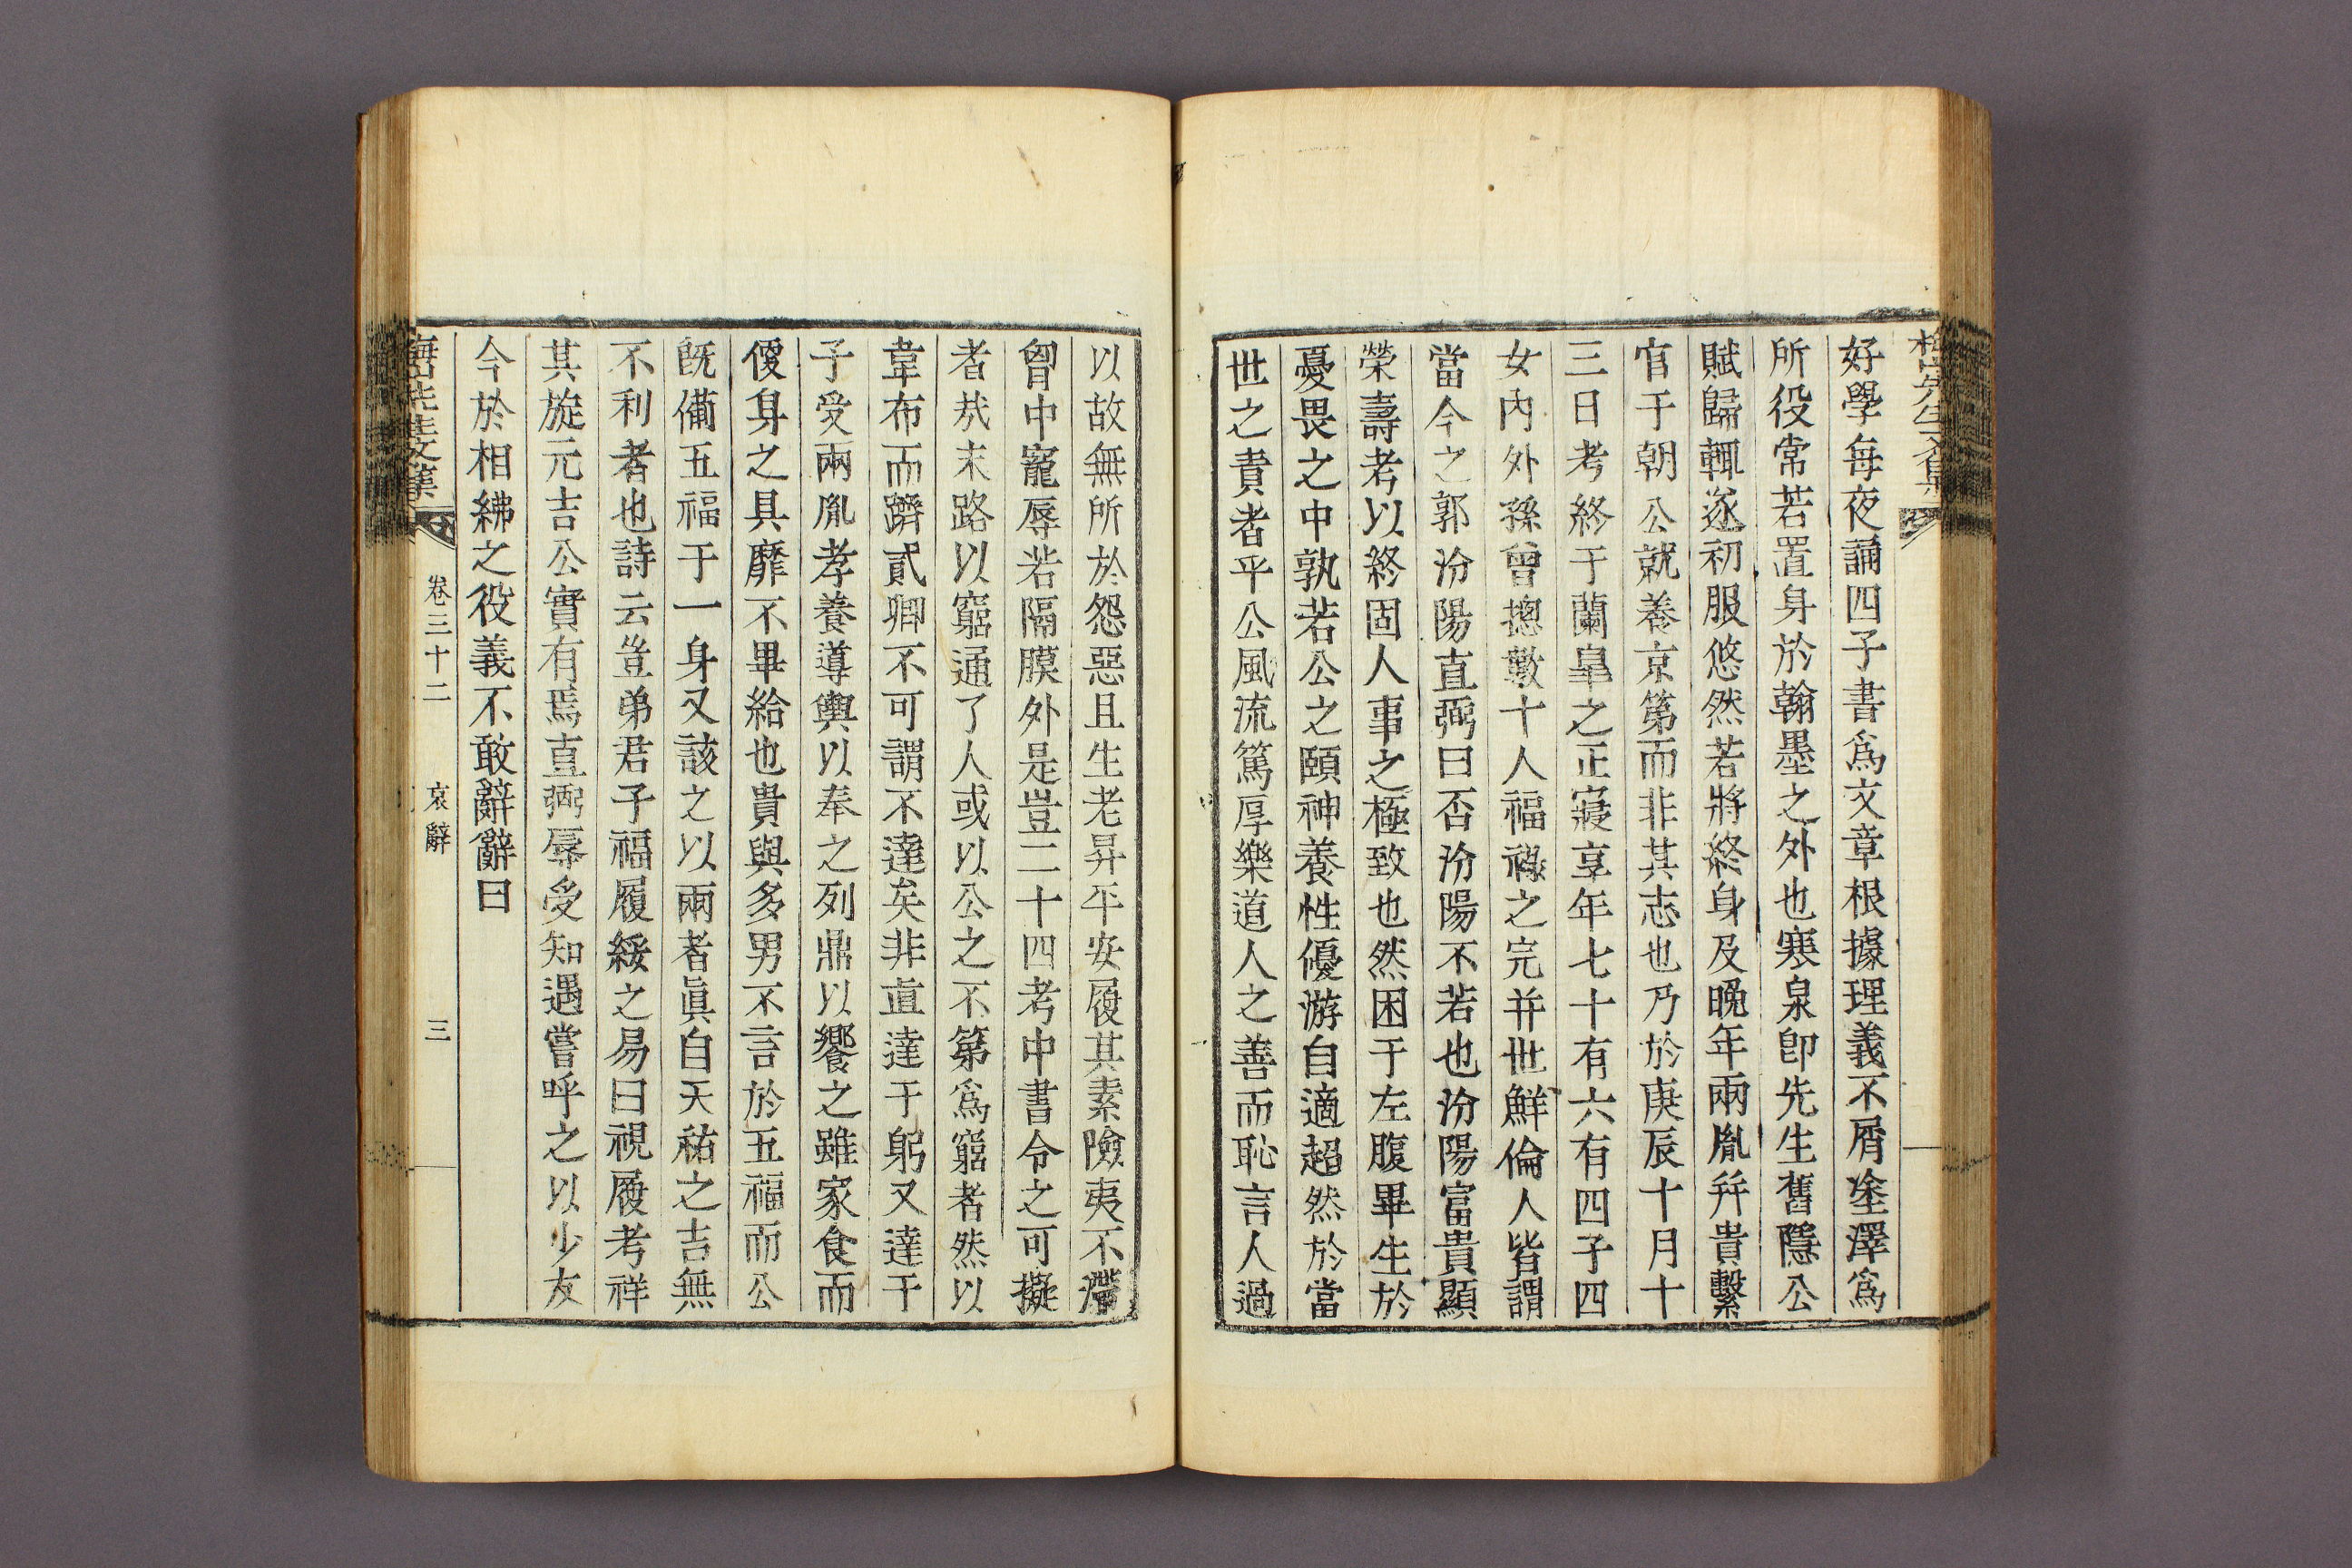 好學每夜誦四子書爲文章根據理義不屑塗澤爲
所役常若置身於翰墨之外也寒泉卽先生舊隱公
賦歸輒遂初服悠然若將終身及晩年兩胤幷貴繫
官于朝公就養京第而非其志也乃於庚辰十月十
三日考終于蘭皐之正寢享年七十有六有四子四
女內外孫曾摠數十人福祿之完并世鮮倫人皆謂
當今之郭汾陽直弼曰否汾陽不若也汾陽富貴顯
榮壽考以終固人事之極致也然困于左腹畢生於
憂畏之中孰若公之頤神養性優游自適超然於當
世之責者乎公風流篤厚樂道人之善而恥言人過
以故無所於怨惡且生老昇平安履其素險夷不滯
胷中寵辱若隔膜外是豈二十四考中書令之可擬
者哉末路以窮通了人或以公之不第爲窮者然以
韋布而躋貳卿不可謂不達矣非直達于躬又達于
子受兩胤孝養導輿以奉之列鼎以饗之雖家食而
便身之具靡不畢給也貴與多男不言於五福而公
旣備五福于一身又該之以兩者眞自天祐之吉無
不利者也詩云豈弟君子福履綏之易曰視履考祥
其旋元吉公實有焉直弼辱受知遇嘗呼之以少友
今於相紼之役義不敢辭辭曰
梅山先生文集
卷三十二 哀辭 三